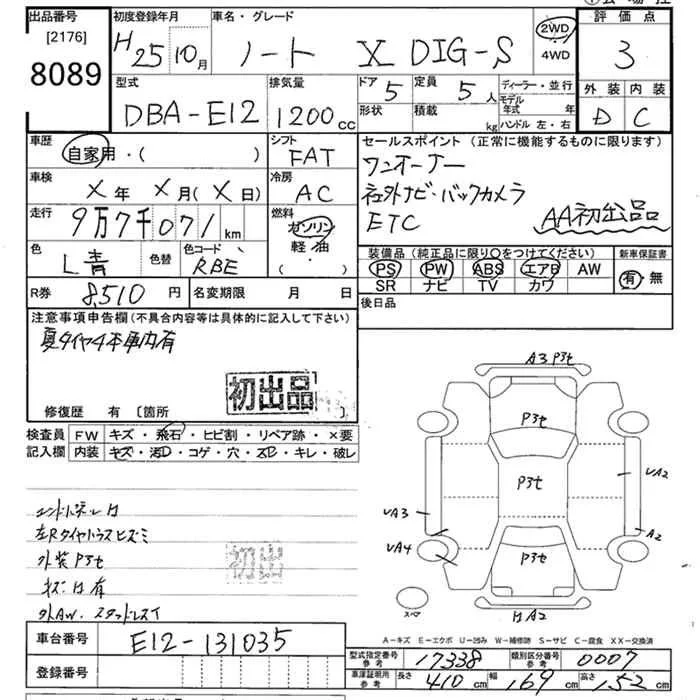 出品番号 初度登録年月 車名・グレード 評価点
[2176]
8089
H25 10月 ノート X DIG-S 2WD 4WD 3
外装 内装
D C
型式 排気量 ドア 定員 ディーラー・並行
DBA-E12 1200cc 5 5人 モデル年式 年
形状 積載 kg ハンドル 左・右
車歴 シフト セールスポイント (正常に機能するものに限ります)
自家用・( ) FAT ワンオーナー
車検 冷房 社外ナビ・バックカメラ
X年 X月(X日) AC ETC AA初出品
走行 9万7千071km 燃料 ガソリン 軽・油 ・( )
色 L青 色替 色コード RBE
装備品 (純正品に限り○をつけてください) 新車保証書
PS PW ABS エアB AW 有・無
SR ナビ TV カワ
R券 8,510円 名変期限 月 日 後日品
注意事項申告欄 (不具合内容等は具体的に記入して下さい)
夏タイヤ4本車内有
初出品
修復歴 有 〔箇所 〕
検査員 FW キズ・飛石・ヒビ割・リペア跡・×要
記入欄 内装 キズ・汚D・コゲ・穴・スレ・キレ・破レ
エンドパネルH
左Rタイヤハウスヒズミ
外装P3t
キズH有
外AW.スタッドレスイ
初出
A3 P3t
P3t
P3t
P3t
UA2
A2
UA3
UA4
HA2
スペア
A-キズ E-エクボ U-凹み W-補修跡 S-サビ C-腐食 XX-交換済
車台番号 E12-131035
登録番号
型式指定番号 参考 17338 類別区分番号 参考 0007
車庫証明用 参考 長さ 410cm 幅 169cm 高さ 152cm